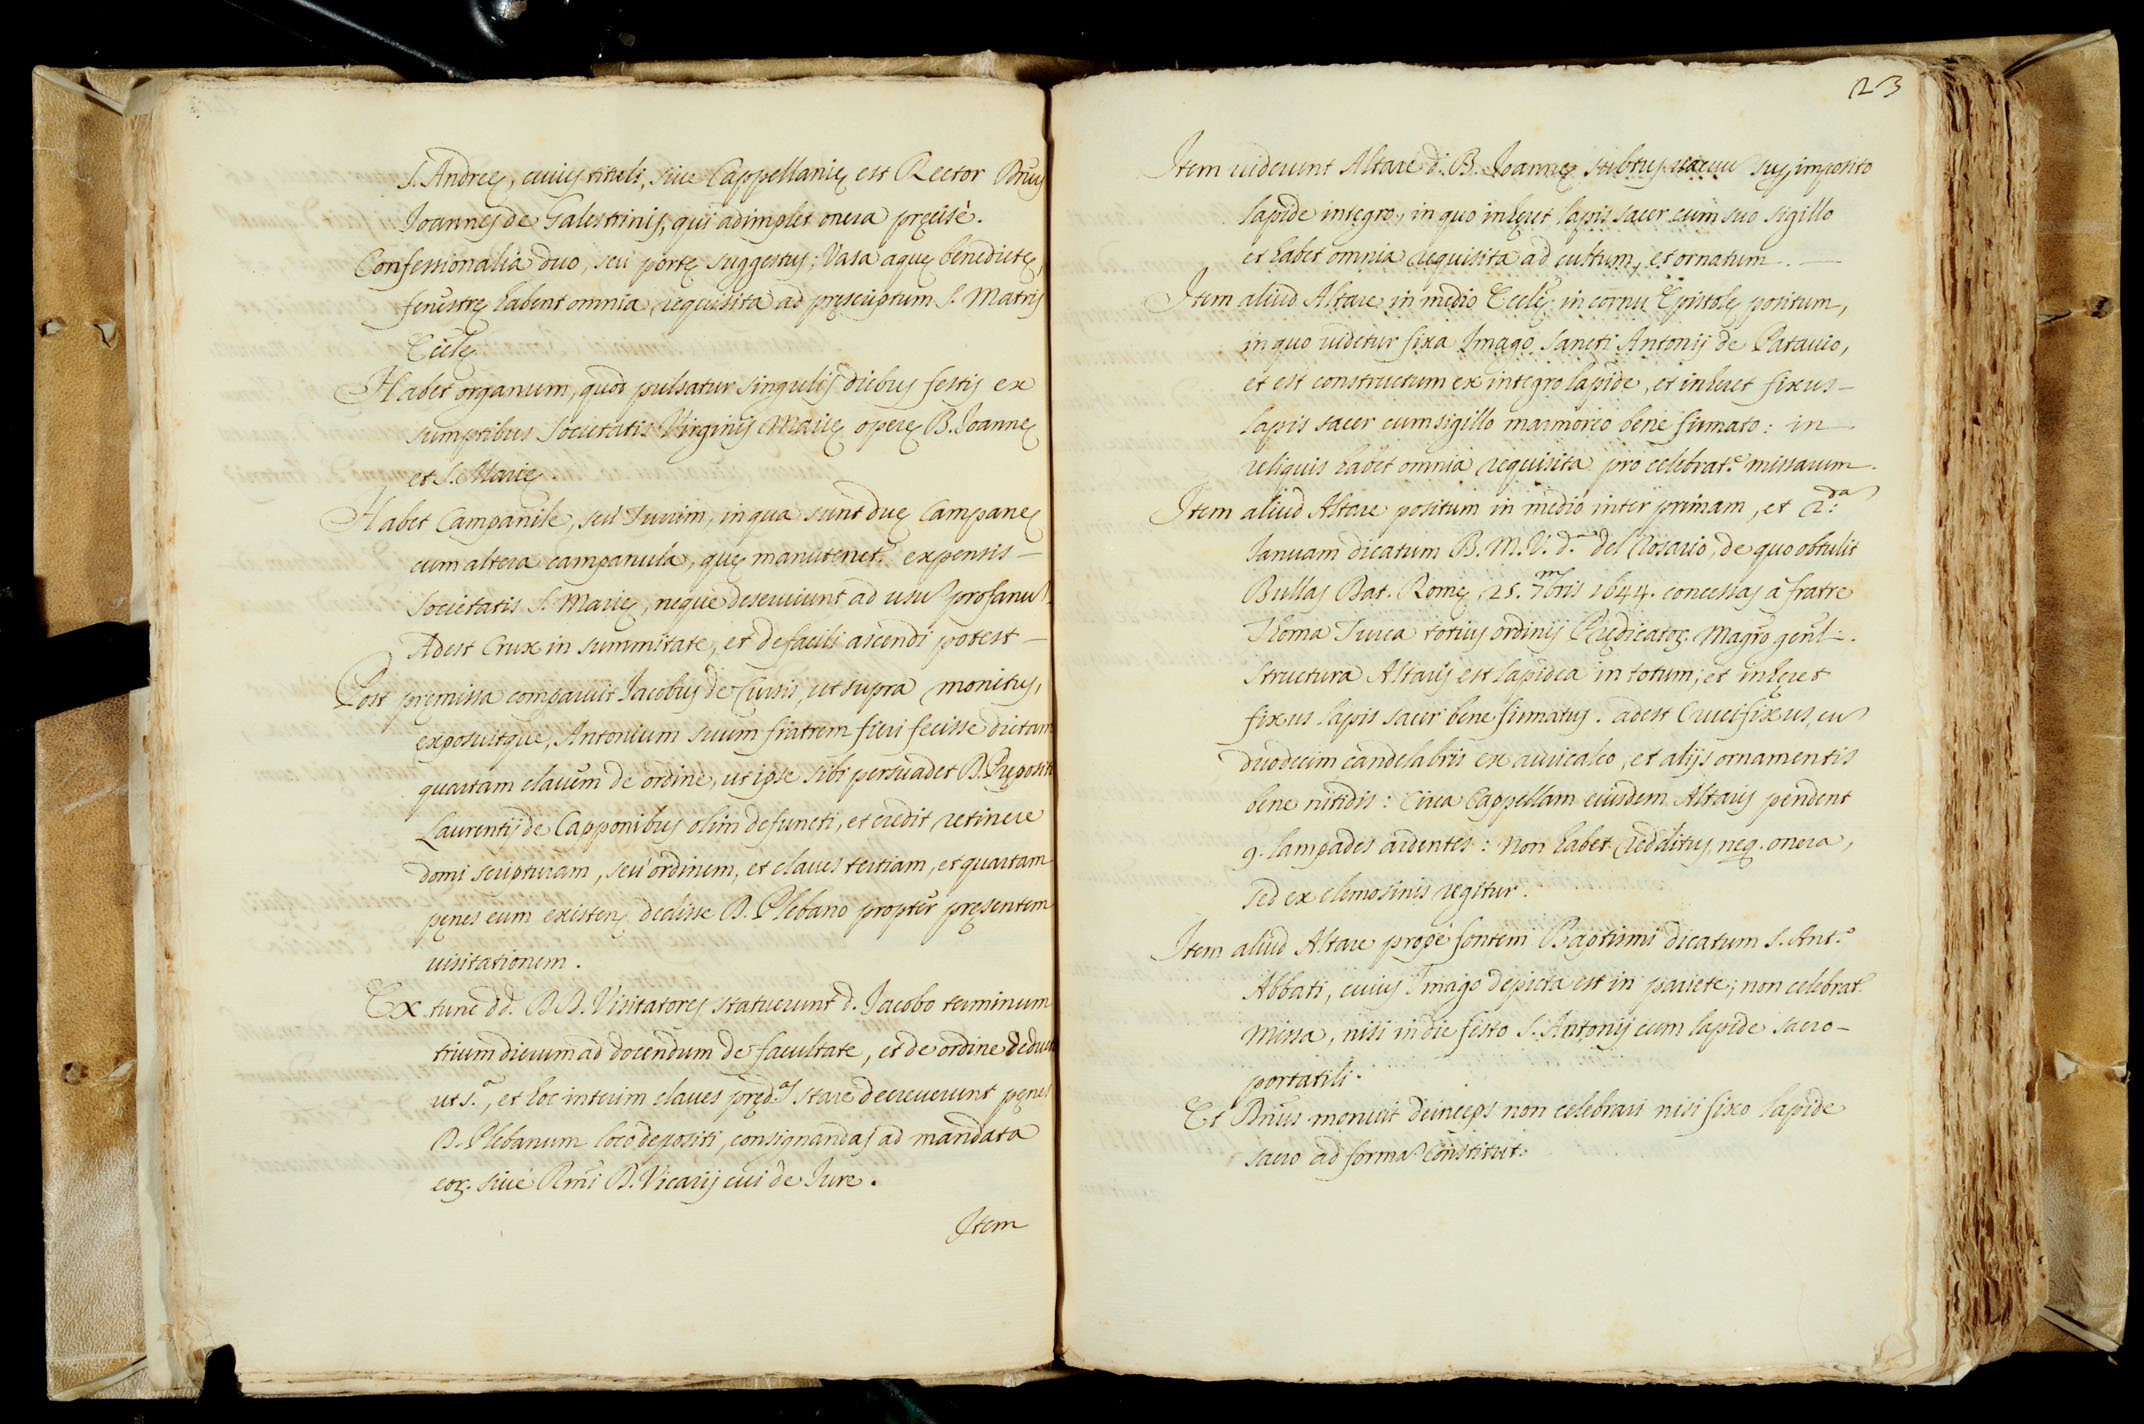 S. Andreę, cuius tituli, siue Cappellanię est Rector Dnus
Joannes de Galestrinis, qui adimplet onera pręcisè.
Confessionalia duo, seu portę suggestus; Vasa aquę benedictę,
fenestrę habent omnia requisita ad pręscriptum S. Matris
Eccłę
Habet organum, quod pulsatur singulis diebus festis ex
sumptibus Societatis Virginis Marię operę B. Joannę
et S. Marię.
Habet Campanile, seu Turrim, in qua sunt duę Campanę
cum altera campanula, quę manutenet.r expensis
Societatis S. Marię, neque deseruiunt ad usũ profanũ.
Adest Crux in summitate, et de facili ascendi potest
Post pręmissa comparuit Jacobus de Cursis, ut supra monitus,
exposuitque, Antonium suum fratrem fieri fecisse dictam
quartam clauem de ordine, ut ipse sibi persuadet D. Prępositi
Laurentij de Capponibus olim defuncti, et credit retinere
domi scripturam, seu ordinem, et claues tertiam, et quartam
penes eum existen. dedisse D. Plebano propter pręsentem
uisitationem.
Ex tunc dd. DD. Visitatores statuerunt d. Jacobo terminum
trium dierum ad docendum de facultate, et de ordine deduct.
ut s.a, et hoc interim claues pręd.as stare decreuerunt penes
D. Plebanum loco depositi, consignandas ad mandata
eor. siue Rmi D. Vicarij cui de Jure.
Item
123
Item uiderunt Altare d. B. Joannę subtus imposito
lapide integro, in quo inhęret lapis sacer cum suo sigillo
et habet omnia requisita ad cultum, et ornatum.
Item aliud Altare in medio Eccłę in cornu Epistolę positum,
in quo uidetur fixa Imago Sancti Antonij de Patauio,
et est constructum ex integro lapide, et inhęret fixus
lapis sacer cum sigillo marmoreo bene firmato: in
reliquis habet omnia requisita pro celebrat.e missarum.
Item aliud Altare positum in medio inter primam, et 2.da
Januam dicatum B. M. V. d.a del Rosario, de quo obtulit
Bullas Dat. Romę 25. 7mbris 1644. concessas à fratre
Thoma Turca totius ordinis Prędicator. Magro genłi.
Structura Altaris est lapidea in totum; et inhęret
fixus lapis sacer bene firmatus. adest Crucifixus, cũ
duodecim candelabris ex auricalco, et alijs ornamentis
bene nitidis: Circa Cappellam eiusdem Altaris pendent
9. lampades ardentes: Non habet redditus, neq. onera,
sed ex elemosinis regitur.
Item aliud Altare propè fontem Baptismi dicatum S. Ant.o
Abbati, cuius Imago depicta est in pariete; non celebrat.r
Missa, nisi in die festo S. Antonij cum lapide sacro
portatili.
Et Dnus monuit deinceps non celebrari nisi fixo lapide
sacro ad formã Constitut.